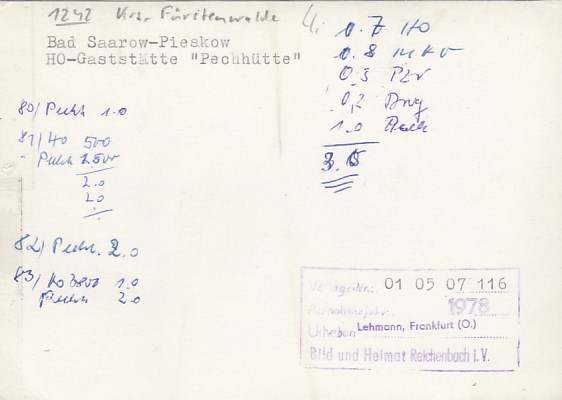 1242 Krs. Fürstenwalde
Bad Saarow-Pieskow
HO-Gaststätte "Pechhütte"
0.7 HO
0.8
0,3
0,2
1.0
3.0
80/ Pech 1.0
81/ HO 500
Pech 1.500
2.0
2.0
82/ Pech. 2.0
83/ Ho 1.0
Pech 2.0
Verlags-Nr.: 01 05 07 116
Aufnahmejahr: 1978
Urheber: Lehmann, Frankfurt (O.)
Bild und Heimat Reichenbach i. V.